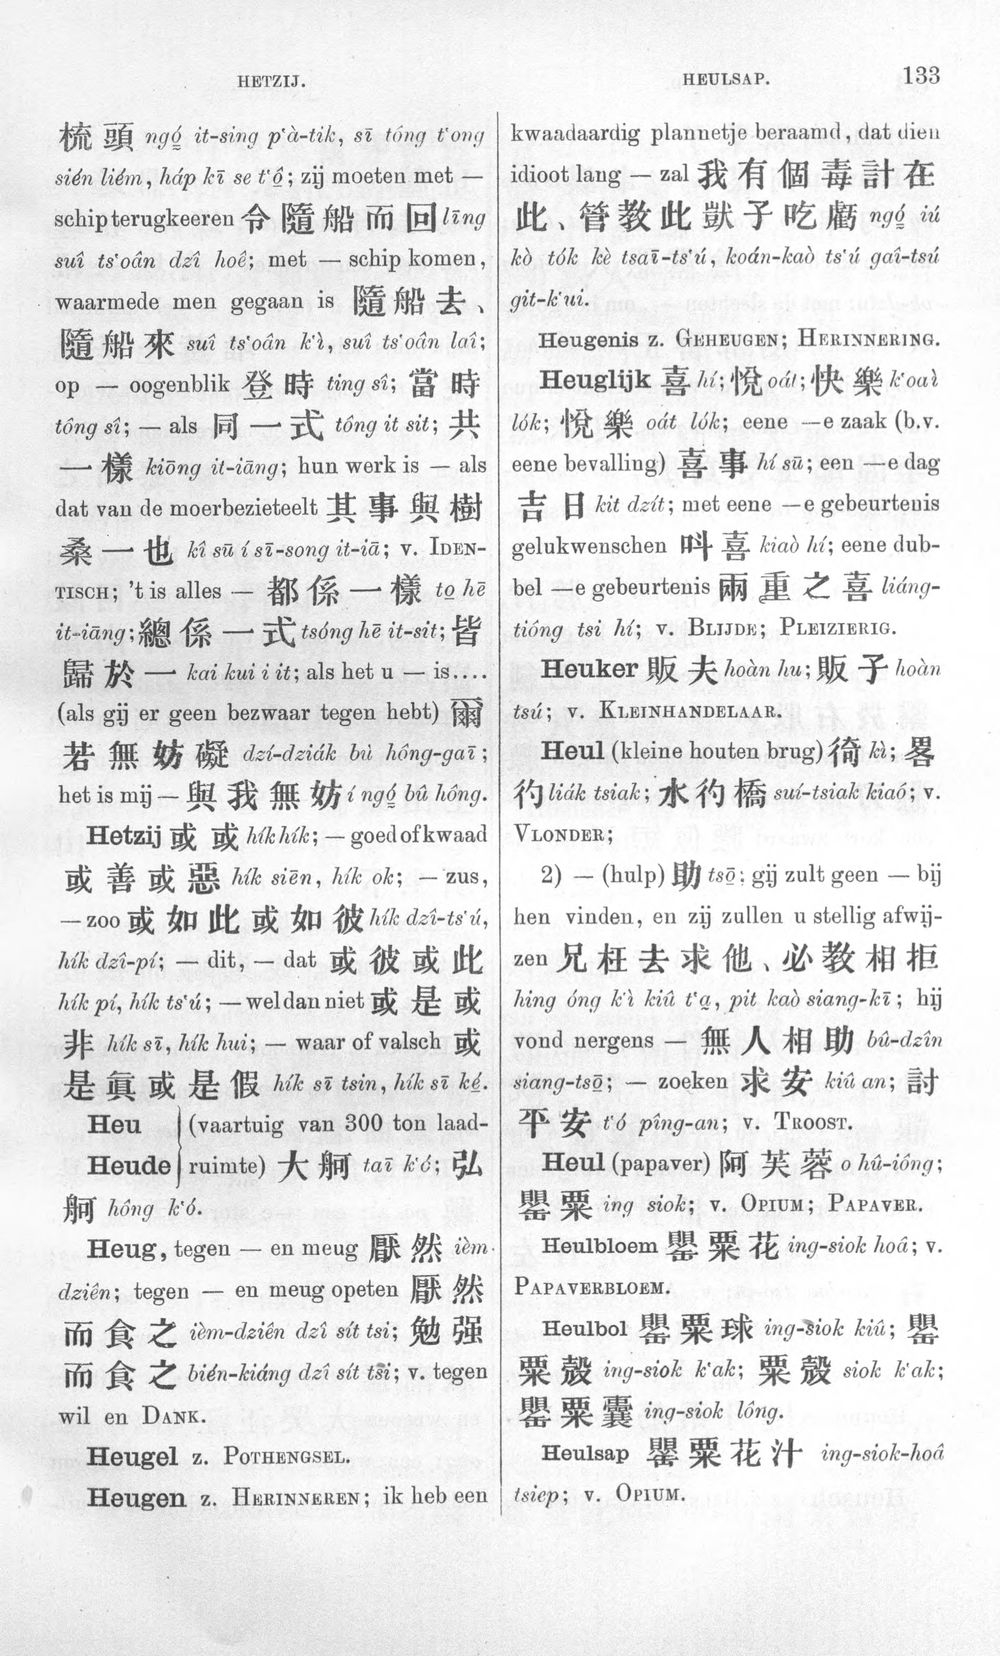 HETZIJ.
HEULSAP.
133
梳頭 ngó̤ it-sing p‘à-tik, sī tóng t‘ong
sién liém, háp kī se t‘ô̤; zij moeten met —
schip terugkeeren 令隨船而回 līng
suî ts‘oân dzî hoê; met — schip komen,
waarmede men gegaan is 隨船去、
隨船來 suî ts‘oân k‘ì, suî ts‘oân laî;
op — oogenblik 登時 ting sî; 當時
tông sî; — als 同一式 tông it sit; 共
一樣 kiōng it-iāng; hun werk is — als
dat van de moerbezieteelt 其事與樹
桑一也 kî sū í sī-song it-iā; v. IDEN-
TISCH; 't is alles — 都係一樣 to̤ hē
it-iāng; 總係一式 tsóng hē it-sit; 皆
歸於一 kai kui i it; als het u — is....
(als gij er geen bezwaar tegen hebt) 爾
若無妨礙 dzí-dziák bû hông-gaī;
het is mij — 與我無妨 í ngó̤ bû hông.
Hetzij 或 或 hík hík; — goed of kwaad
或善或惡 hík siēn, hík ok; — zus,
— zoo 或如此或如彼 hík dzî-ts‘ú,
hík dzî-pí; — dit, — dat 或彼或此
hík pí, hík ts‘ú; — wel dan niet 或是或
非 hík sī, hík hui; — waar of valsch 或
是眞或是假 hík sī tsin, hík sī ké̤.
Heu (vaartuig van 300 ton laad-
Heude ruimte) 大舸 taī k‘ó; 弘
舸 hông k‘ó.
Heug, tegen — en meug 厭然 ièm-
dziên; tegen — en meug opeten 厭然
而食之 ièm-dziên dzî sít tsi; 勉强
而食之 bién-kiáng dzî sít tsi; v. tegen
wil en DANK.
Heugel z. POTHENGSEL.
Heugen z. HERINNEREN; ik heb een
kwaadaardig plannetje beraamd, dat dien
idioot lang — zal 我有個毒計在
此、管教此獃子吃虧 ngó̤ iú
kò tók kè tsaī-ts‘ú, koán-kaò ts‘ú gaî-tsú
git-k‘ui.
Heugenis z. GEHEUGEN; HERINNERING.
Heuglijk 喜 hí; 悅 oát; 快樂 k‘oaì
lók; 悅樂 oát lók; eene —e zaak (b.v.
eene bevalling) 喜事 hí sū; een —e dag
吉日 kit dzít; met eene —e gebeurtenis
gelukwenschen 叫喜 kiaò hí; eene dub-
bel —e gebeurtenis 兩重之喜 liáng-
tióng tsi hí; v. BLIJDE; PLEIZIERIG.
Heuker 販夫 hoàn hu; 販子 hoàn
tsú; v. KLEINHANDELAAR.
Heul (kleine houten brug) 徛 kì; 畧
彴 liák tsiak; 水彴橋 suí-tsiak kiaó; v.
VLONDER;
2) — (hulp) 助 tsō; gij zult geen — bij
hen vinden, en zij zullen u stellig afwij-
zen 兄枉去求他、必教相拒
hing óng k‘ì kiû t‘a̤, pit kaò siang-kī; hij
vond nergens — 無人相助 bû-dzîn
siang-tsō̤; — zoeken 求安 kiû an; 討
平安 t‘ó pîng-an; v. TROOST.
Heul (papaver) 阿芙蓉 o hû-iông;
罌粟 ing siok; v. OPIUM; PAPAVER.
Heulbloem 罌粟花 ing-siok hoâ; v.
PAPAVERBLOEM.
Heulbol 罌粟球 ing-siok kiû; 罌
粟殼 ing-siok k‘ak; 粟殼 siok k‘ak;
罌粟囊 ing-siok lông.
Heulsap 罌粟花汁 ing-siok-hoâ
tsiep; v. OPIUM.